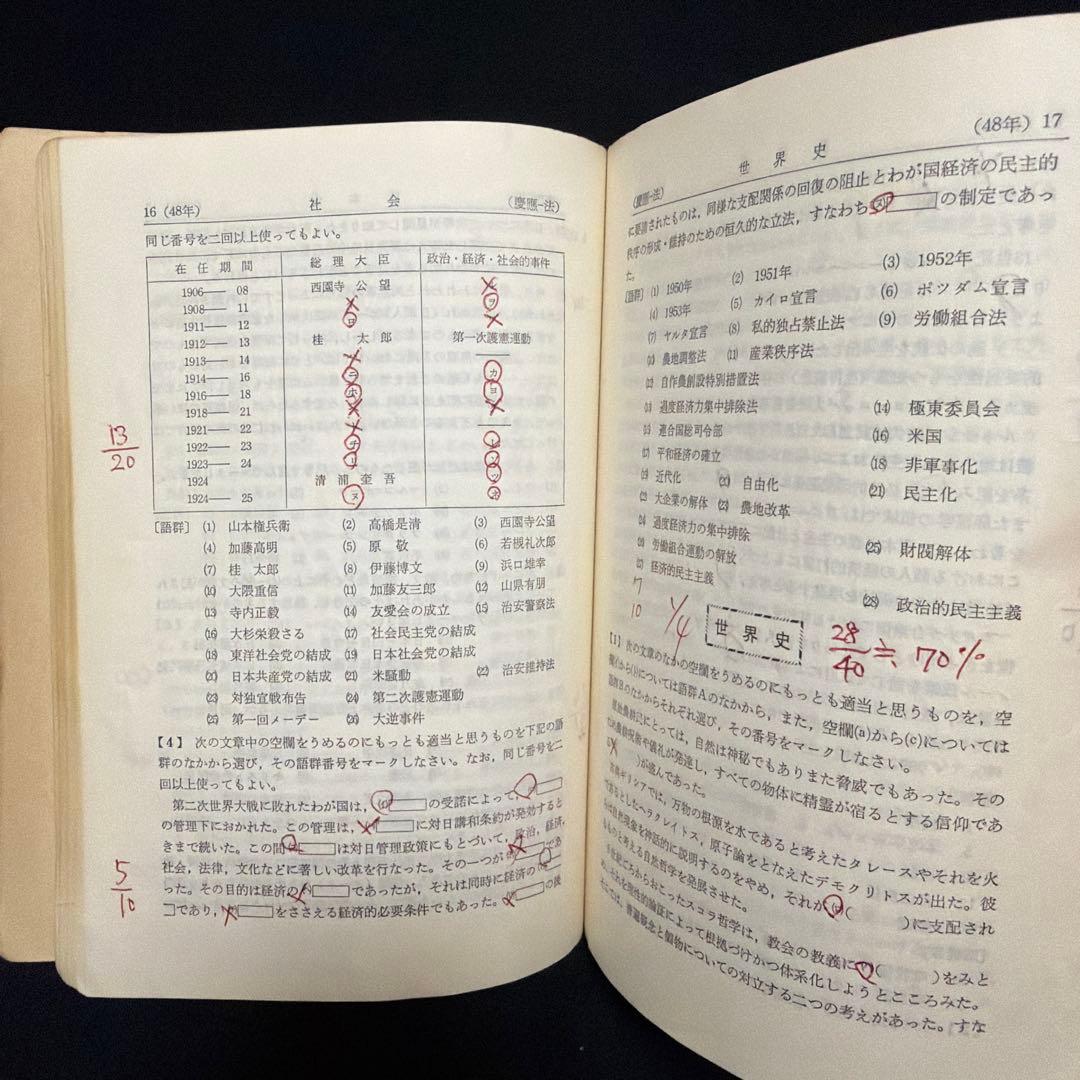 16 (48年)　社会　(慶應−法)
同じ番号を二回以上使ってもよい。
在任期間　総理大臣　政治・経済・社会的事件
1906── 08　西園寺公望
1908── 11　ヲ
1911── 12　ロ
1912── 13　桂太郎　第一次護憲運動
1913── 14
1914── 16　ニ　カ
1916── 18　ホ　ヨ
1918── 21
1921── 22
1922── 23　チ
1923── 24　リ　ソ
1924　清浦奎吾　ツ
1924── 25　ヌ　ネ
13/20
〔語群〕 (1) 山本権兵衛　(2) 高橋是清　(3) 西園寺公望
(4) 加藤高明　(5) 原敬　(6) 若槻礼次郎
(7) 桂太郎　(8) 伊藤博文　(9) 浜口雄幸
(10) 大隈重信　(11) 加藤友三郎　(12) 山県有朋
(13) 寺内正毅　(14) 友愛会の成立　(15) 治安警察法
(16) 大杉栄殺さる　(17) 社会民主党の結成
(18) 東洋社会党の結成　(19) 日本社会党の結成
(20) 日本共産党の結成　(21) 米騒動　(22) 治安維持法
(23) 対独宣戦布告　(24) 第二次護憲運動
(25) 第一回メーデー　(26) 大逆事件
【4】 次の文章中の空欄をうめるのにもっとも適当と思うものを下記の語
群のなかから選び，その語群番号をマークしなさい。なお，同じ番号を二
回以上使ってもよい。
第二次世界大戦に敗れたわが国は，(ロ)の受諾によって，
の管理下におかれた。この管理は，に対日講和条約が発効すると
きまで続いた。この間は対日管理政策にもとづいて，政治，経済，
社会，法律，文化などに著しい改革を行なった。その一つがであ
った。その目的は経済のであったが，それは同時に経済のの後
であり，をささえる経済的必要条件でもあった。
5/10
(慶應−法)　世界史　(48年) 17
に要請されたものは，同様な支配関係の回復の阻止とわが国経済の民主的
秩序の形成・維持のための恒久的な立法，すなわち(ヌ)の制定であっ
た。
〔語群〕 (1) 1950年　(2) 1951年　(3) 1952年
(4) 1953年　(5) カイロ宣言　(6) ポツダム宣言
(7) ヤルタ宣言　(8) 私的独占禁止法　(9) 労働組合法
(10) 農地調整法　(11) 産業秩序法
(12) 自作農創設特別措置法
(13) 過度経済力集中排除法　(14) 極東委員会
(15) 連合国総司令部　(16) 米国
(17) 平和経済の確立　(18) 非軍事化
(19) 近代化　(20) 自由化　(21) 民主化
(22) 大企業の解体　(23) 農地改革
(24) 過度経済力の集中排除　(25) 財閥解体
(26) 労働組合運動の解放
(27) 経済的民主主義　(28) 政治的民主主義
7
10
1/4
世界史
28/40≒70%
【1】 次の文章のなかの空欄をうめるのにもっとも適当と思うものを，空
については語群Aのなかから，また，空欄(a)から(c)については
語群Bのなかからそれぞれ選び，その番号をマークしなさい。
原始農耕民にとっては，自然は神秘でもありまた脅威でもあった。その
ため農耕呪術や儀礼が発達し，すべての物体に精霊が宿るとする信仰であ
)が盛んであった。
古典ギリシアでは，万物の根源を水であると考えたタレースやそれを火
であるとしたヘラクレイトス，原子論をとなえたデモクリトスが出た。彼
らは自然現象を神話的に説明するのをやめ，それが(ロ)(　)に支配され
るものと考える自然哲学を発展させた。
ごろからおこったスコラ哲学は，教会の教義に(　)をみと
め，それを理性的論証によって根拠づけかつ体系化しようとこころみた。
そこでは，普遍観念と個物についての対立する二つの考えがあった。すな